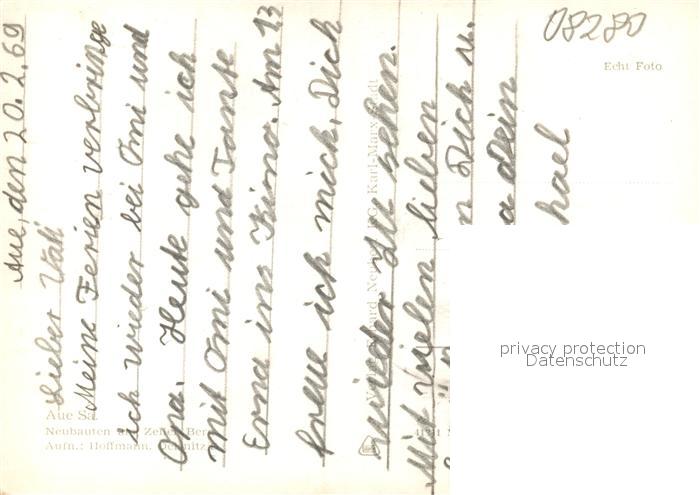 Aue, den 20.2.69
Lieber Vati
Meine Ferien verbringe
ich wieder bei Omi und
Opa. Heute gehe ich
mit Omi und Tante
Erna ins Kino. Am 13
freue ich mich, Dich
wieder zu sehen.
Mit vielen lieben
n Dich u.
a Dein
hael
08280
Echt Foto
Aue Sa.
Neubauten am Zeller Berg
Aufn.: Hoffmann,
Karl-Marx-Stadt
privacy protection
Datenschutz